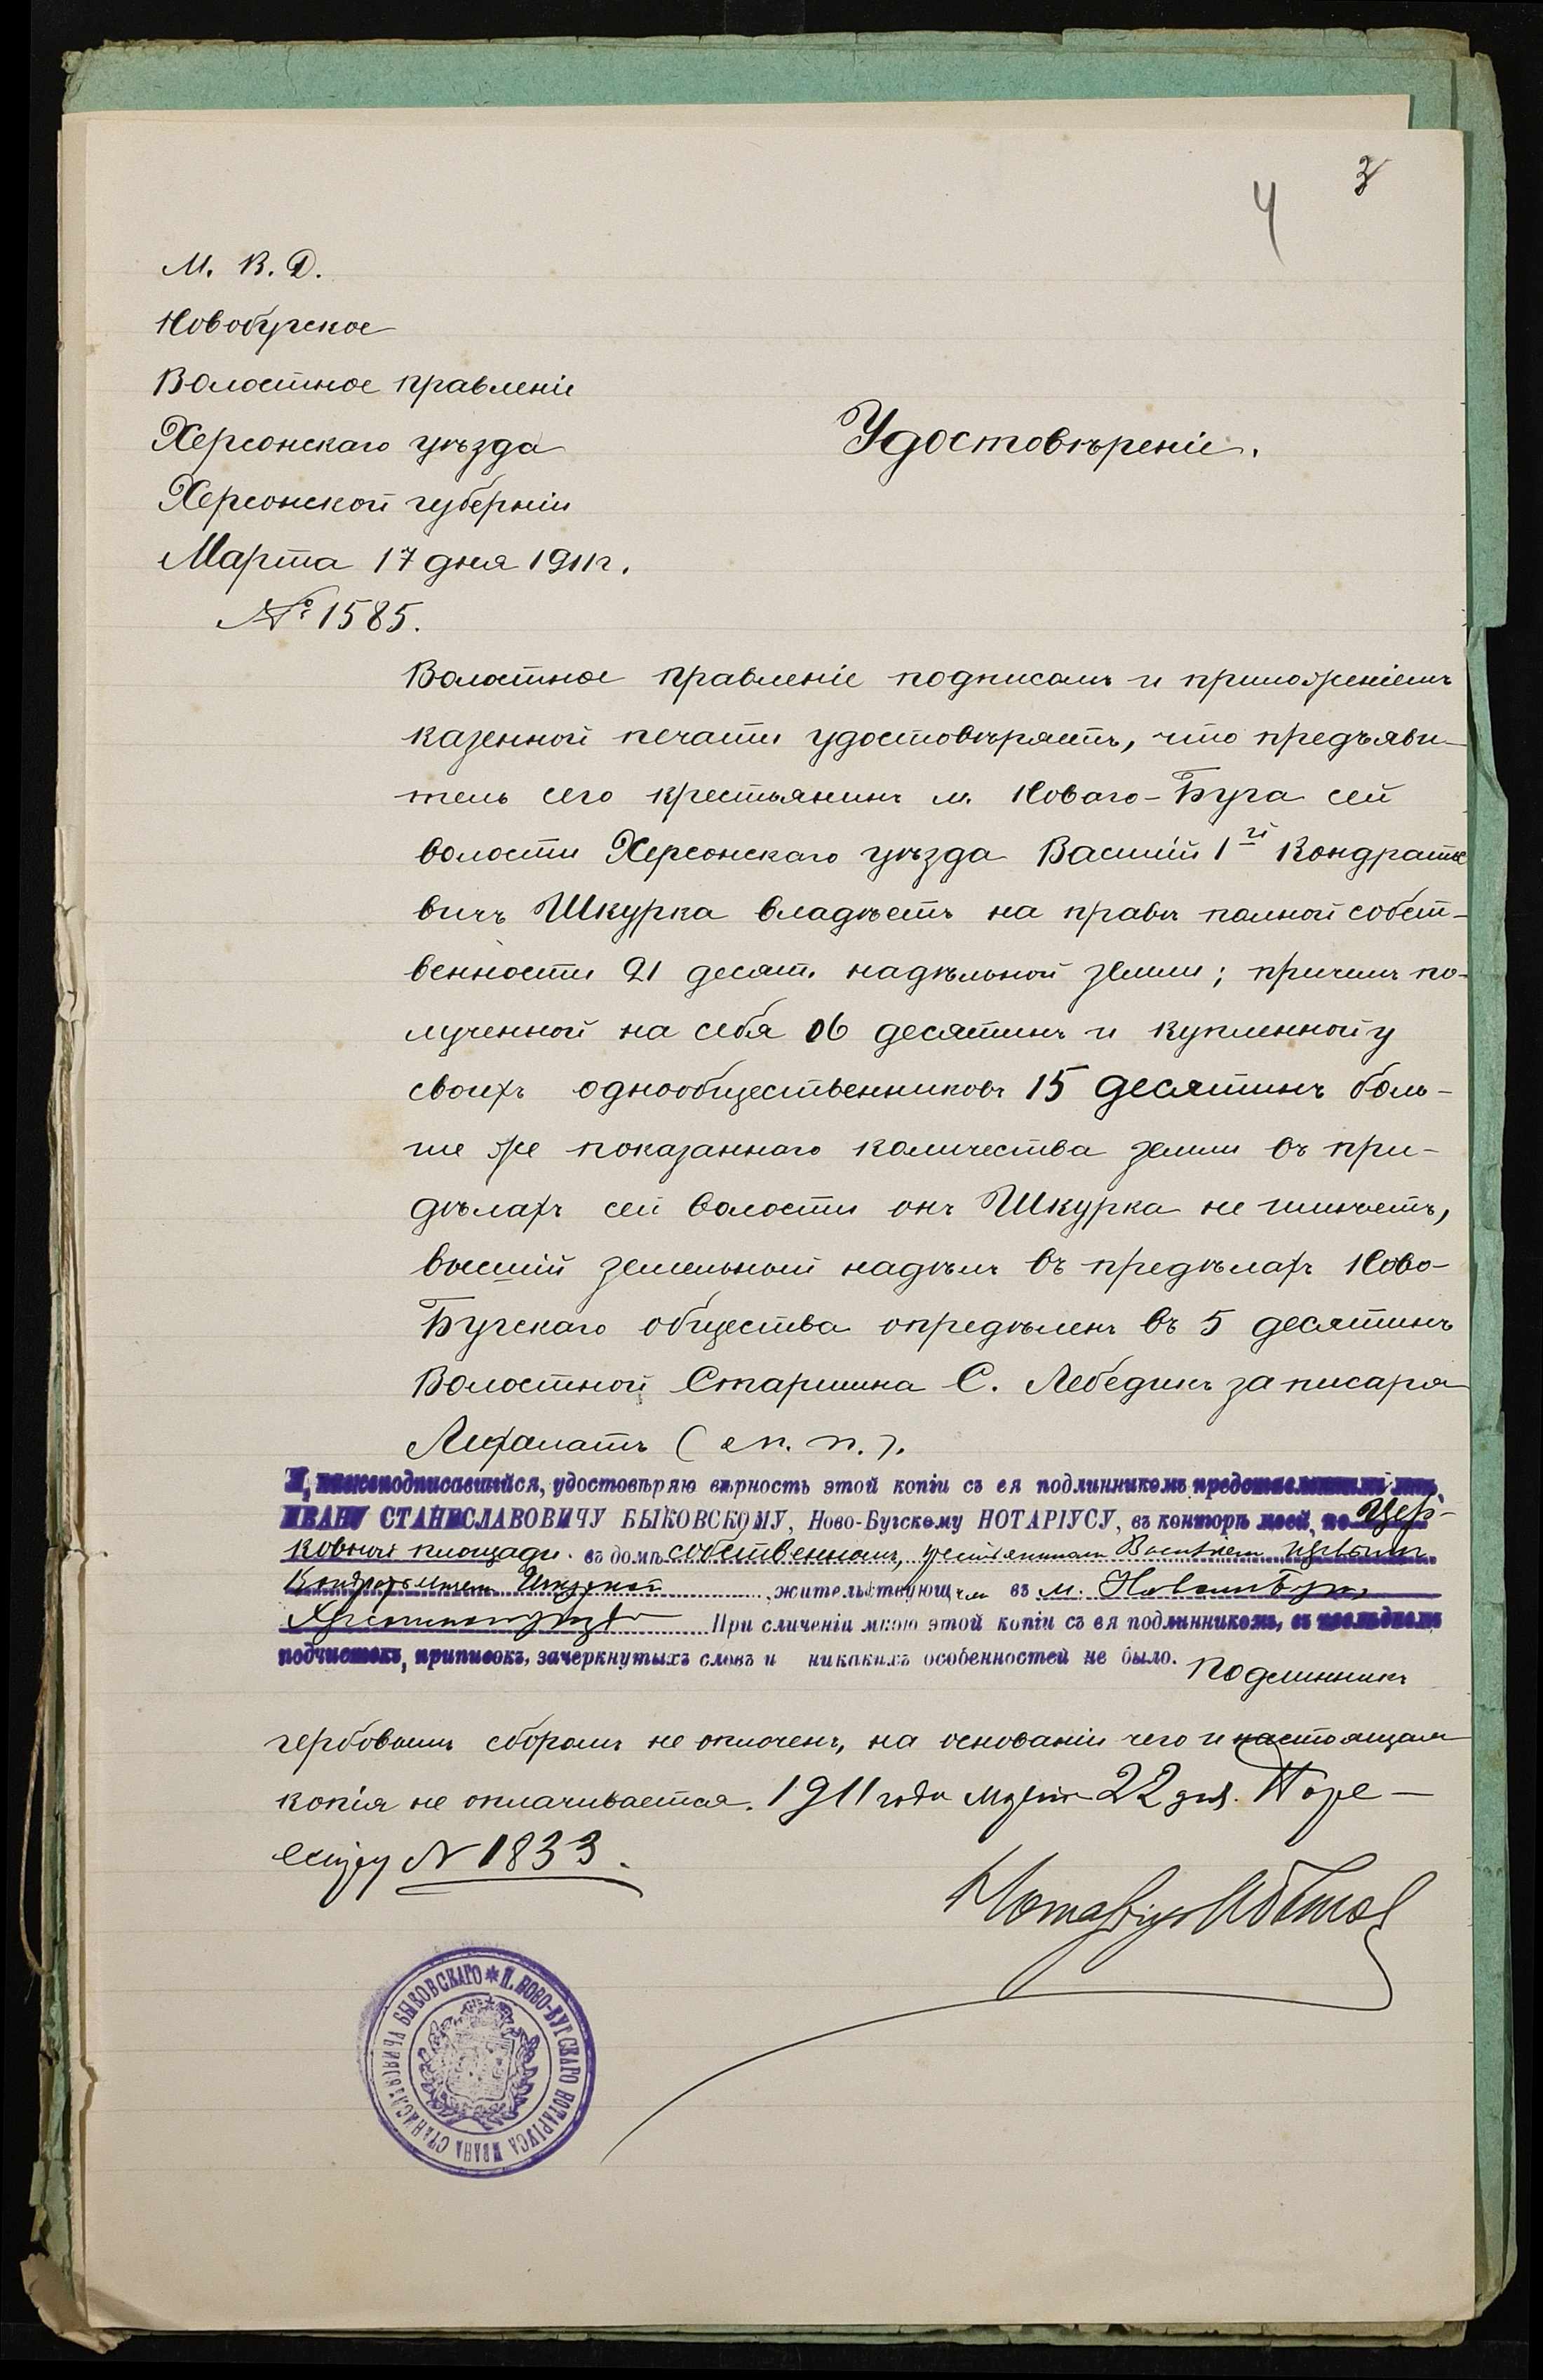 3
4
М. В. Д.
Новобугское
Волостное правленіе
Херсонскаго уѣзда
Херсонской губерніи
Марта 17 дня 1911 г.
№ 1585.
Удостовѣреніе.
Волостное правленіе подписомъ и приложеніемъ
казенной печати удостовѣряетъ, что предъяви-
тель сего крестьянинъ м. Новаго-Буга сей
волости Херсонскаго уѣзда Василій 1й Кондратье
вичъ Шкурка владѣетъ на правѣ полной собст-
венности 21 десят. надѣльной земли; причемъ по-
лученной на себя 06 десятинъ и купленной у
своихъ однообщественниковъ 15 десятинъ боль-
ше же показаннаго количества земли въ при-
дѣлахъ сей волости онъ Шкурка не имѣетъ,
высшій земельный надѣлъ въ предѣлахъ Ново-
Бугскаго общества опредѣленъ въ 5 десятинъ
Волостной Старшина С. Лебединъ за писаря
(м. п.).
Я, нижеподписавшійся, удостовѣряю вѣрность этой копіи съ ея подлинникомъ представленнымъ мнѣ,
ИВАНУ СТАНИСЛАВОВИЧУ БЫКОВСКОМУ, Ново-Бугскому НОТАРІУСУ, въ конторѣ моей, по Цер-
ковной площади въ домѣ собственномъ, крестьяниномъ Василіемъ первымъ
Кондратьевичемъ Шкуркой, жительствующимъ въ м. Новомъ Бугѣ
Херсонскаго уѣзда При сличеніи мною этой копіи съ ея подлинникомъ, въ послѣднемъ
подчистокъ, приписокъ, зачеркнутыхъ словъ и никакихъ особенностей не было. Подлинникъ
гербовымъ сборомъ не оплоченъ, на основаніи чего и настоящая
копія не оплачивается. 1911 года Марта 22 дня. По ре-
естру № 1833.
Нотаріусъ
П. НОВО-БУГСКАГО НОТАРІУСА ИВАНА СТАНИСЛАВОВИЧА БЫКОВСКАГО